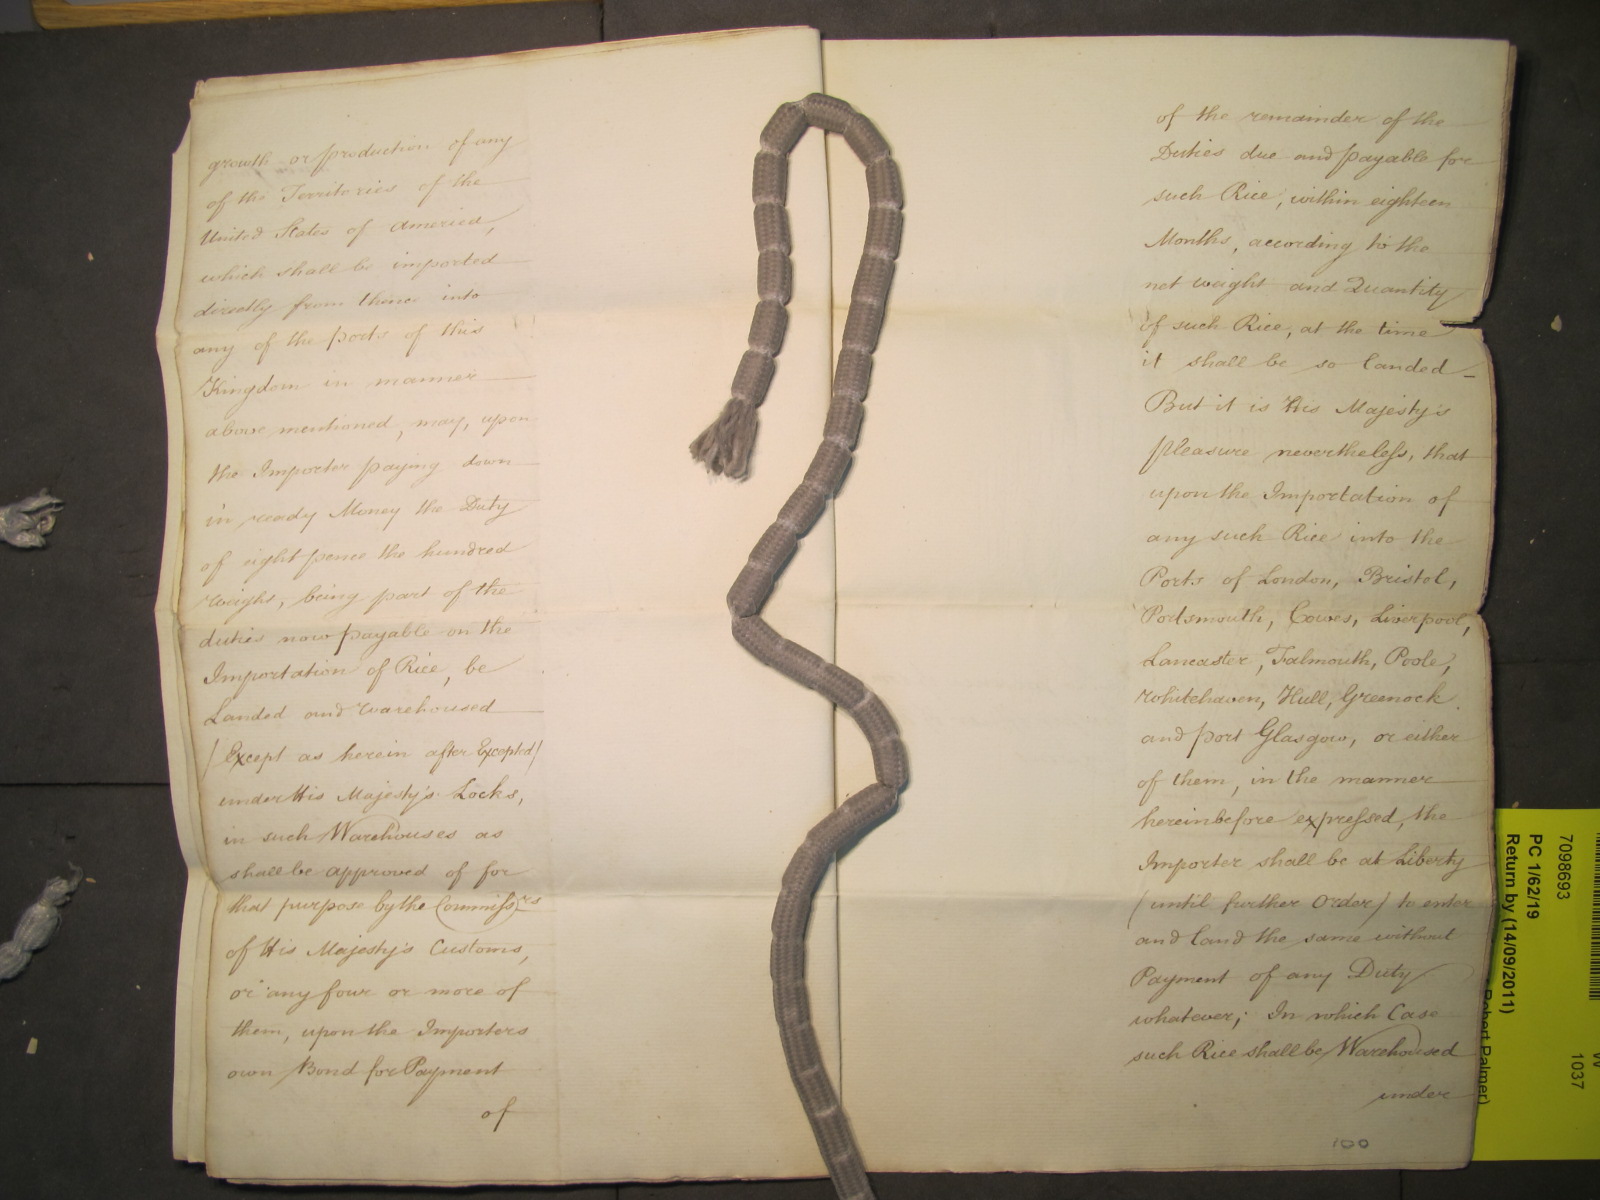 growth or production of any
of the Territories of the
United States of America,
which shall be imported
directly from thence into
any of the ports of this
Kingdom in manner
above mentioned, may, upon
the Importer paying down
in ready Money the Duty
of eight pence the hundred
weight, being part of the
duties now payable on the
Importation of Rice, be
Landed and Warehoused
(Except as herein after Excepted)
under His Majesty's Locks,
in such Warehouses as
shall be approved of for
that purpose by the Commissrs
of His Majesty's Customs,
or any four or more of
them, upon the Importers
own Bond for Payment
of
of the remainder of the
Duties due and payable for
such Rice, within eighteen
Months, according to the
net weight and Quantity
of such Rice, at the time
it shall be so landed —
But it is His Majesty's
pleasure nevertheless, that
upon the Importation of
any such Rice into the
Ports of London, Bristol,
Portsmouth, Cowes, Liverpool,
Lancaster, Falmouth, Poole,
Whitehaven, Hull, Greenock
and port Glasgow, or either
of them, in the manner
hereinbefore expressed, the
Importer shall be at Liberty
(until further Order) to enter
and land the same without
Payment of any Duty
whatever; In which Case
such Rice shall be Warehoused
under
100
7098693
PC 1/62/19
Return by (14/09/2011)
Robert Palmer)
1037